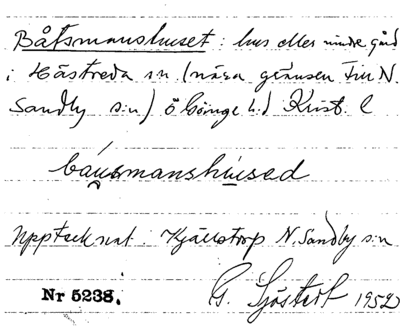 Båtsmanshuset: hus eller mindre gård
i Hästveda sn. (nära gränsen till N.
Sandby s:n) Ö Göinge h.d Krist. l
båusmanshused
Upptecknat i Kjällstorp N. Sandby s:n
Nr 5238. G. Sjöstedt 1952